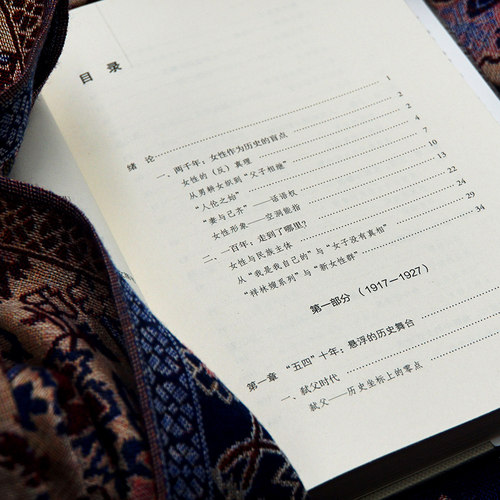 目 录
绪 论 1
一、两千年：女性作为历史的盲点 2
女性的（反）真理 2
从男耕女织到“父子相继” 4
“人伦之始” 7
“妻与己齐”——话语权 10
女性形象——空洞能指 13
二、一百年：走到了哪里？ 22
女性与民族主体 24
从“我是我自己的”与“女子没有真相” 29
“祥林嫂系列”与“新女性群” 34
第一部分（1917—1927）
第一章 “五四”十年：悬浮的历史舞台
一、弑父时代
弑父——历史坐标上的零点